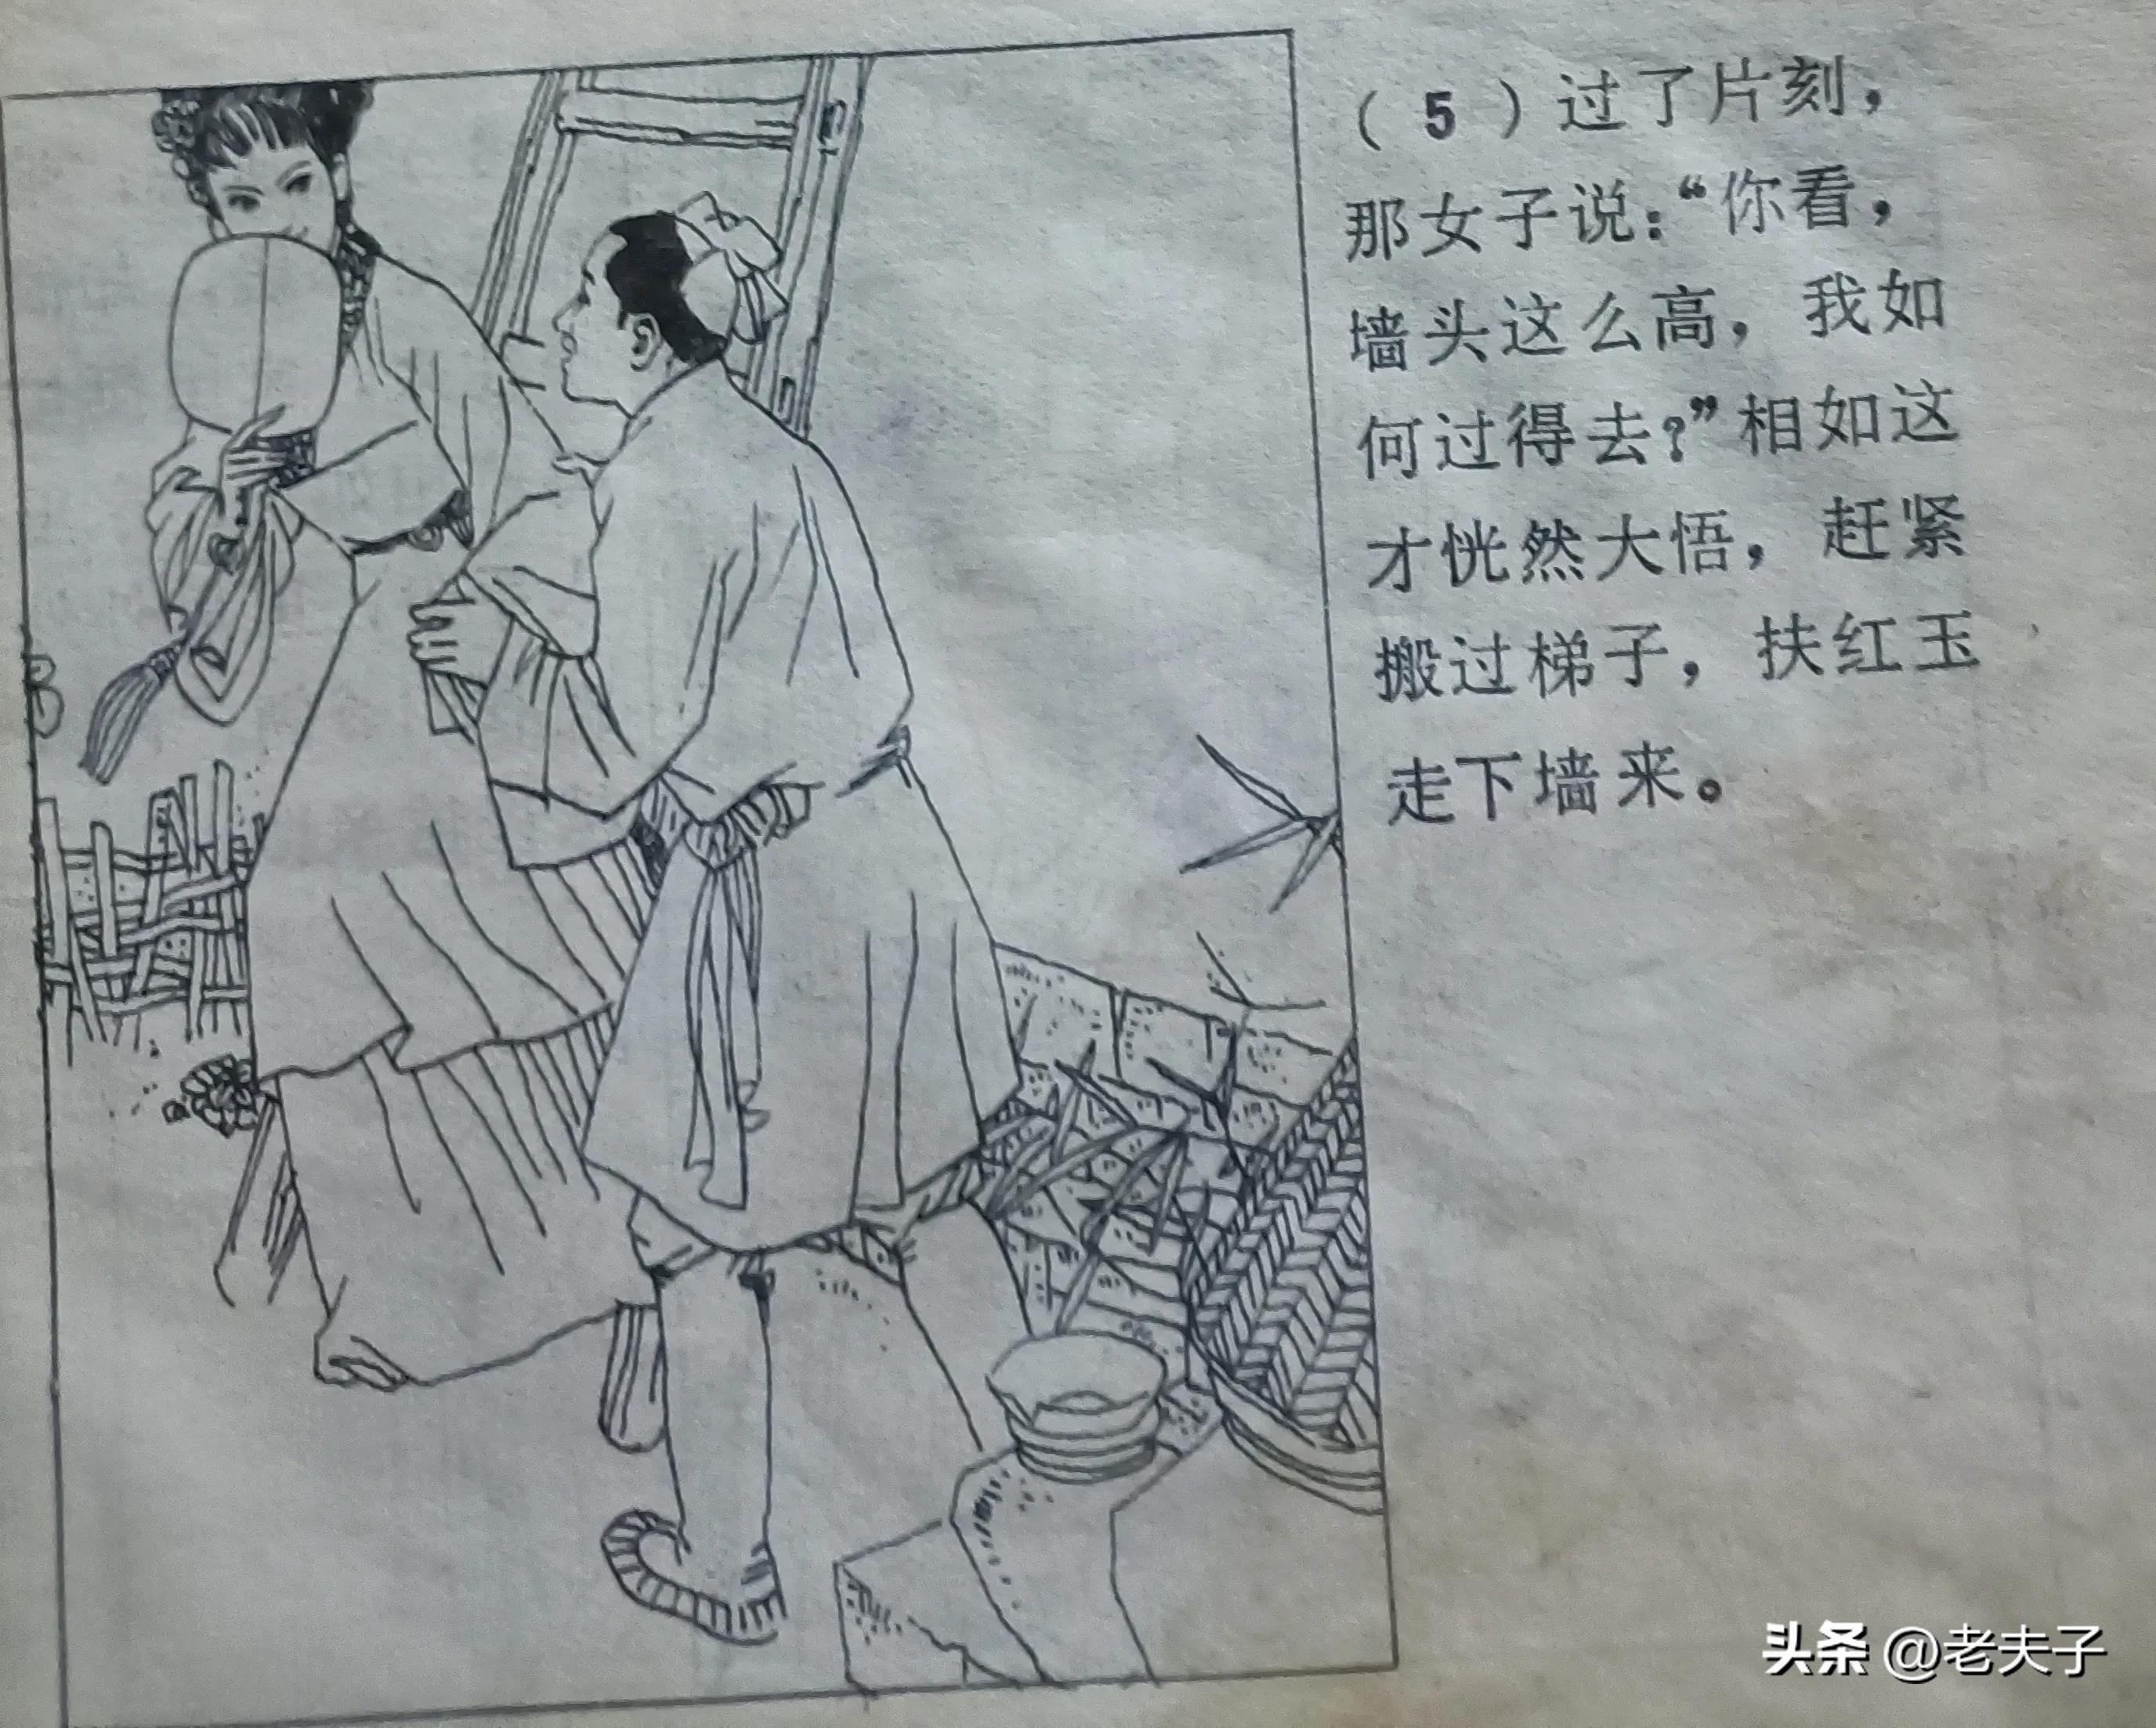 （5）过了片刻，
那女子说：“你看，
墙头这么高，我如
何过得去？”相如这
才恍然大悟，赶紧
搬过梯子，扶红玉
走下墙来。
头条 @老夫子